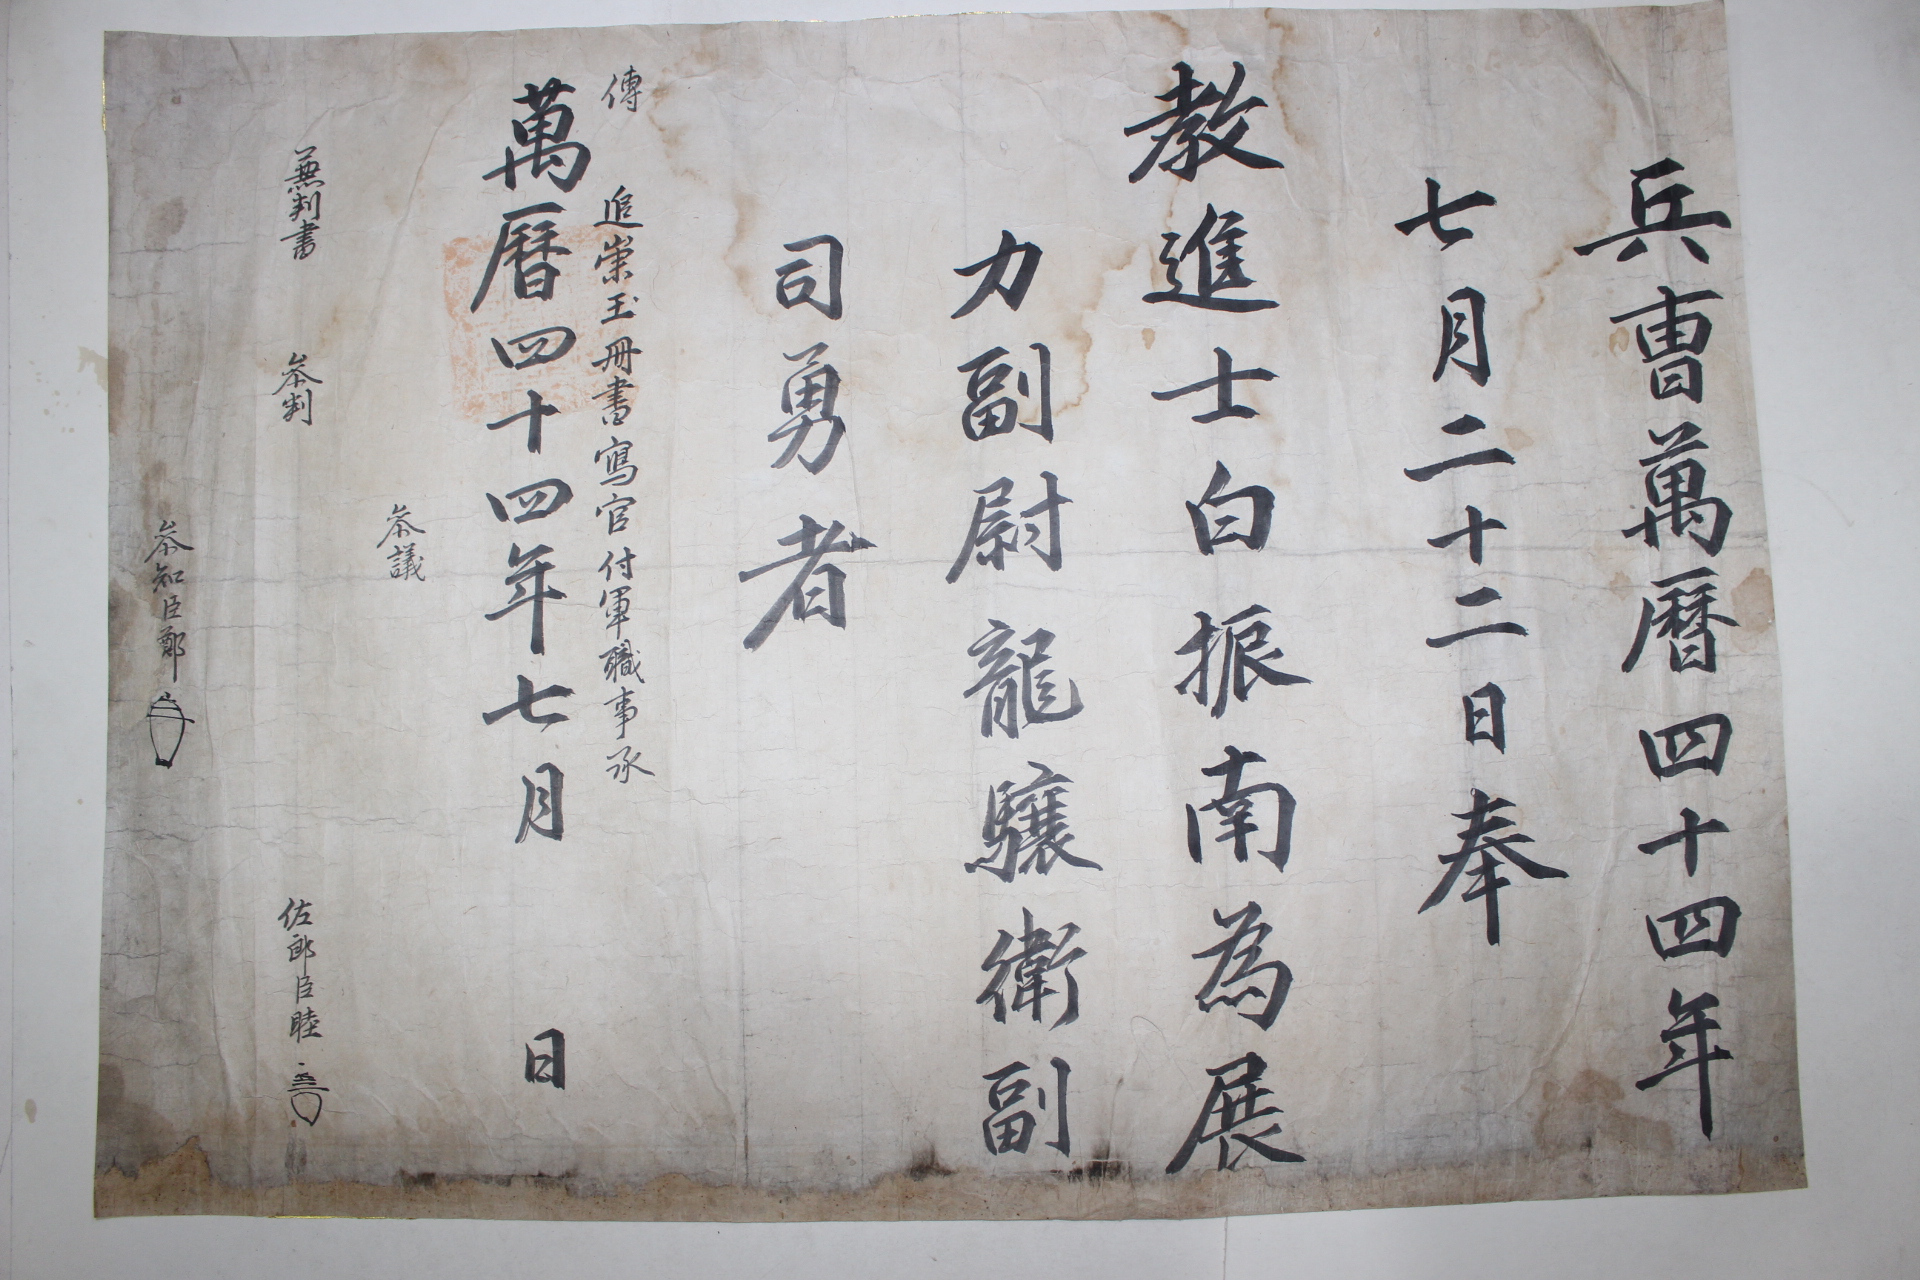 兵曺萬曆四十四年
七月二十二日奉
敎進士白振南為展
力副尉龍驤衛副
司勇者
傳
追崇玉冊書寫官付軍職事承
萬曆四十四年七月 日
參議
兼判書 參判 佐郎臣睦
參知臣鄭